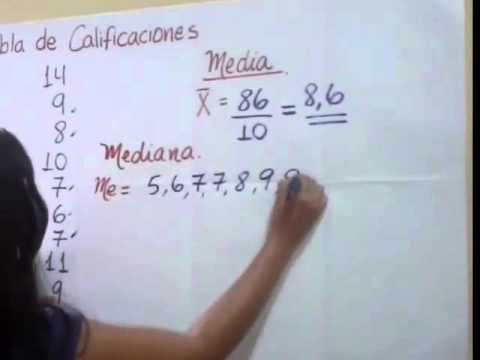 bla de Calificaciones
14
9
8
10
7
6
7
11
9
Media
X̄ = 86/10 = 8,6
Mediana.
Me = 5,6,7,7,8,9,9